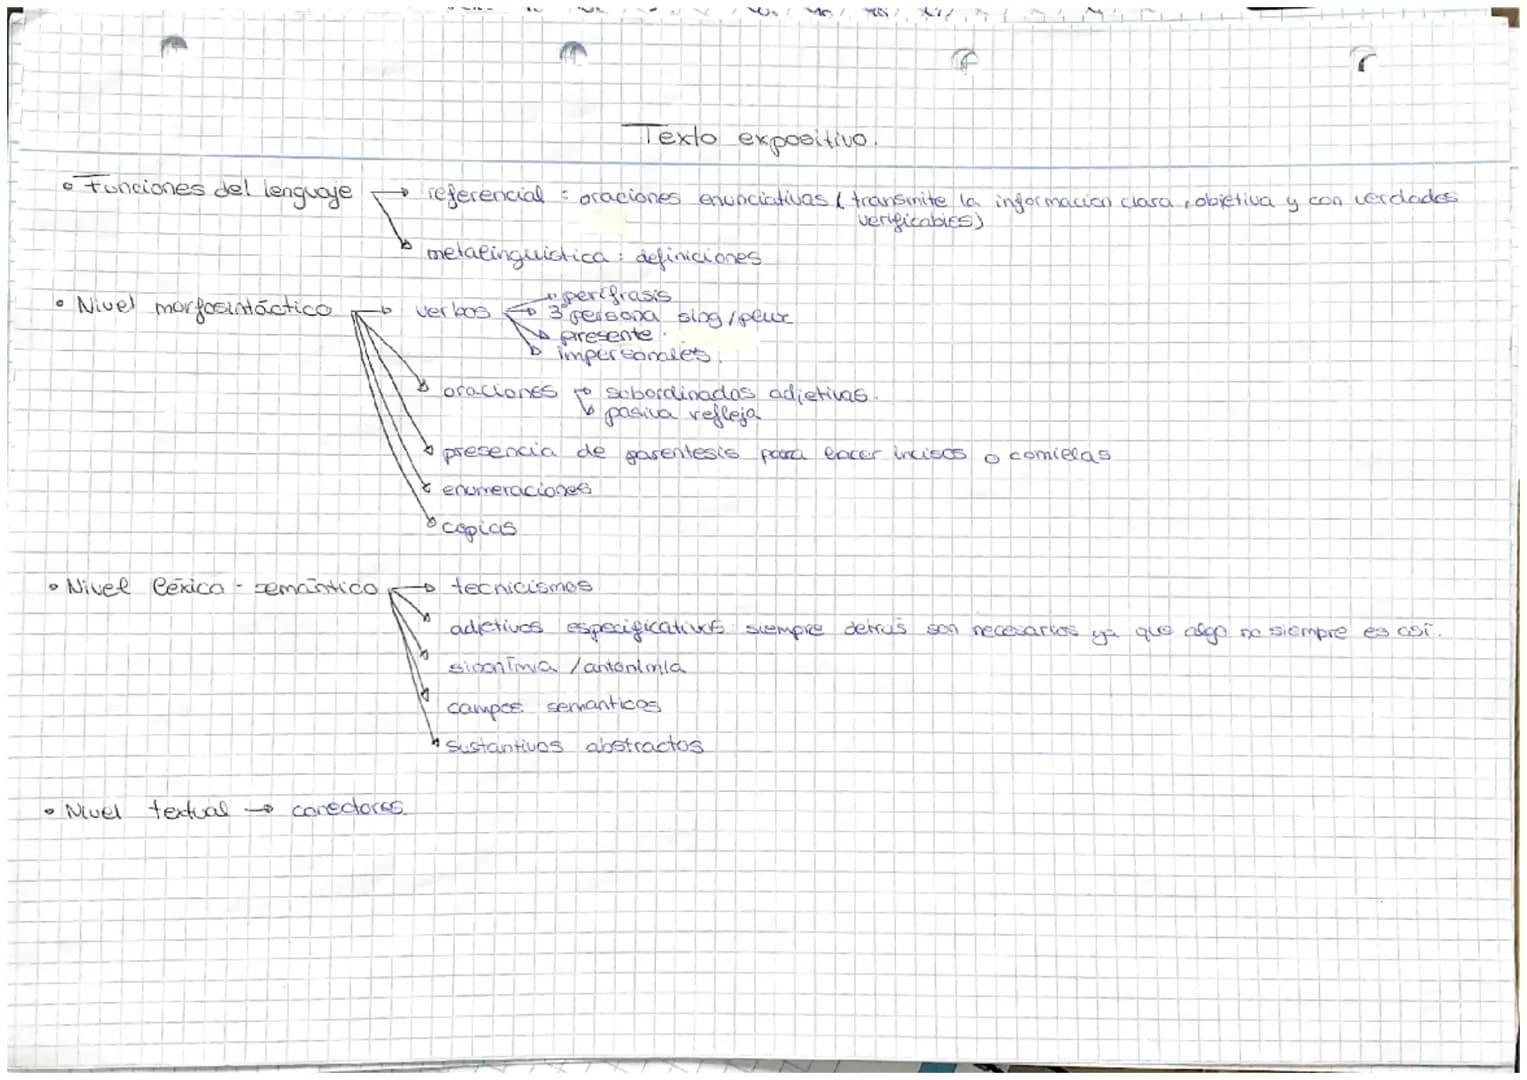 Texto expositivo.
• Funciones del lenguaje → referencial : oraciones enunciativas ( transmite la información clara, objetiva y con verdades
verificables)
metalinguistica : definiciones
• Nivel morfosintáctico → verbos → perífrasis
→ 3ª persona sing/plur
presente.
impersonales.
oraciones → subordinadas adjetivas.
pasiva refleja
presencia de parentesis para hacer incisos o comillas
enumeraciones
copias
• Nivel léxico - semántico → tecnicismos
adjetivos especificativos siempre detrás son necesarios ya que algo no siempre es así.
sinonímia / antonímia
campos semanticos
sustantivos abstractos
• Nivel textual → conectores.